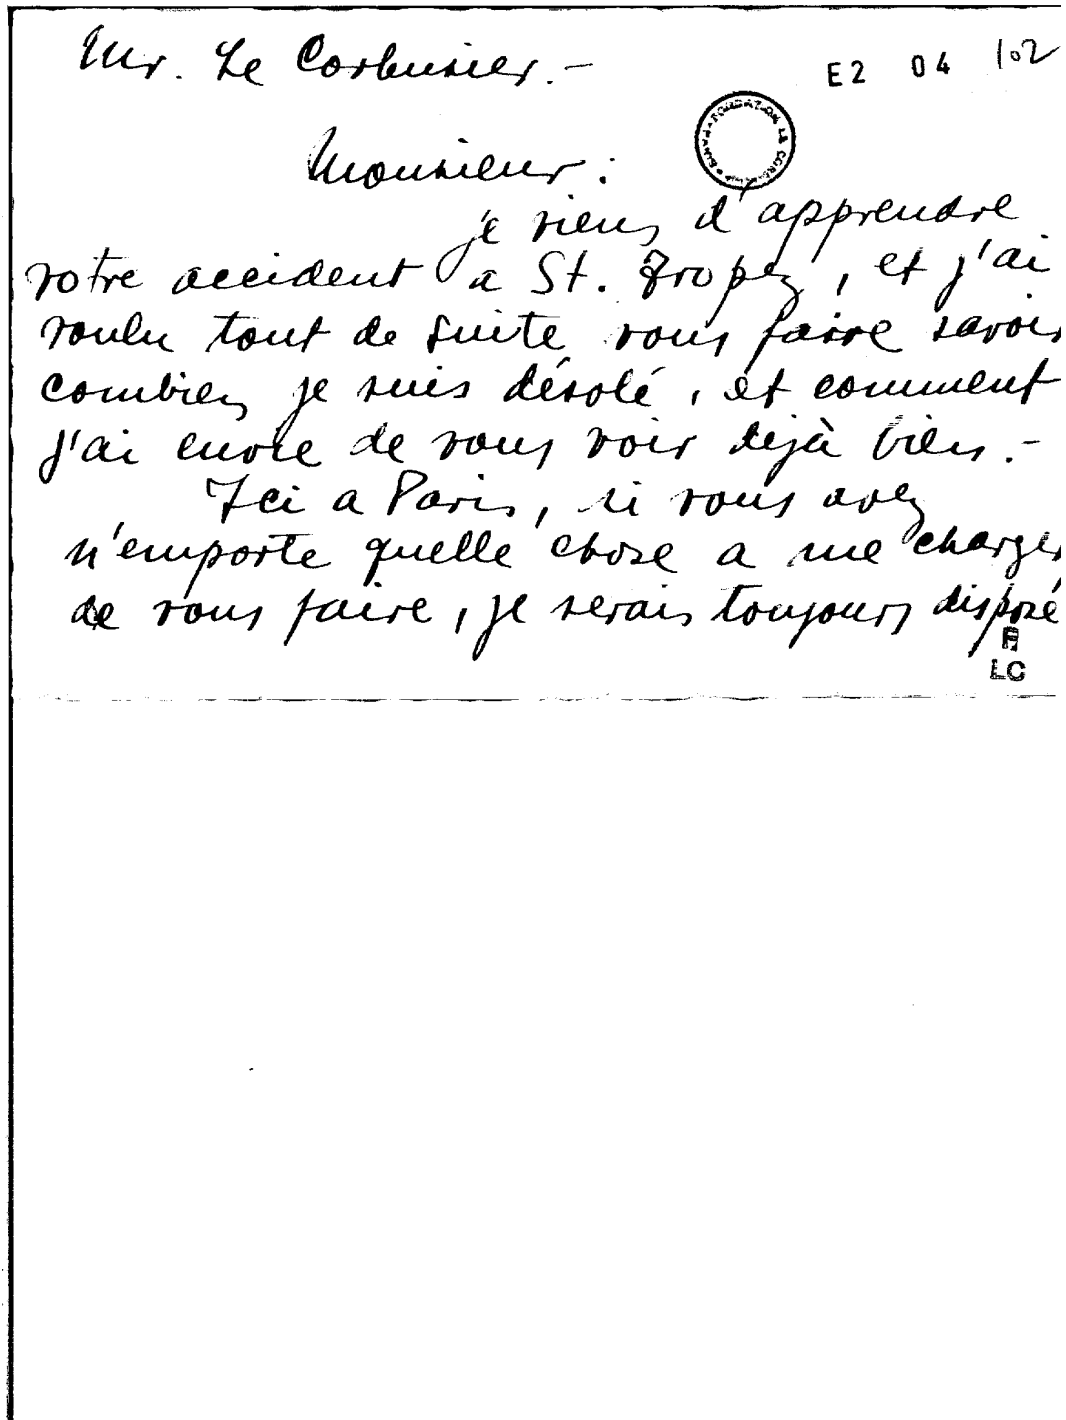 Mr. Le Corbusier.-
E2 04 102
FONDATION LE CORBUSIER
Monsieur:
je viens d'apprendre
votre accident a St. Tropez, et j'ai
voulu tout de suite vous faire savoir
combien je suis désolé, et comment
j'ai envie de vous voir dejà bien.-
Ici a Paris, si vous avez
n'emporte quelle chose a me charger
de vous faire, je serais toujours disposé
F
LC